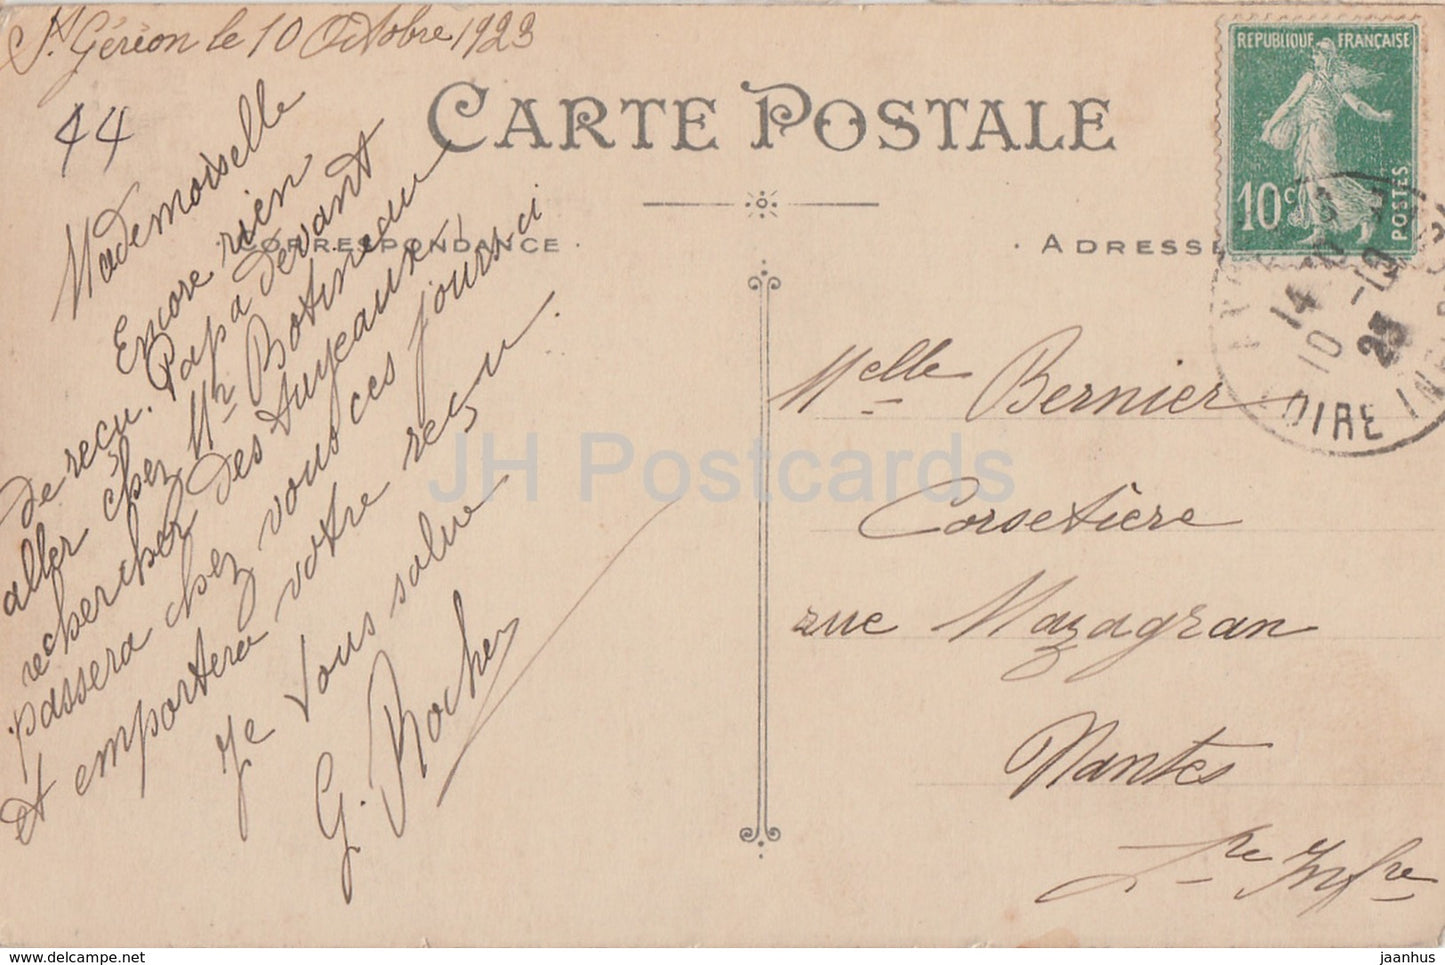 St Géréon le 10 Octobre 1923
44
CARTE POSTALE
RÉPUBLIQUE FRANÇAISE
10c
POSTES
CORRESPONDANCE
ADRESSE
Mademoiselle
Encore rien
de reçu. Papa devant
aller chez Mr Botineau
rechercher des tuyeaux,
passera chez vous ces jours-ci
et emportera votre reçu.
Je vous salue
G. Rocher
14
10 - 10
23
LOIRE INF
Melle Bernier
Corsetière
rue Mazagran
Nantes
Lre Infre
JH Postcards
jaanhus